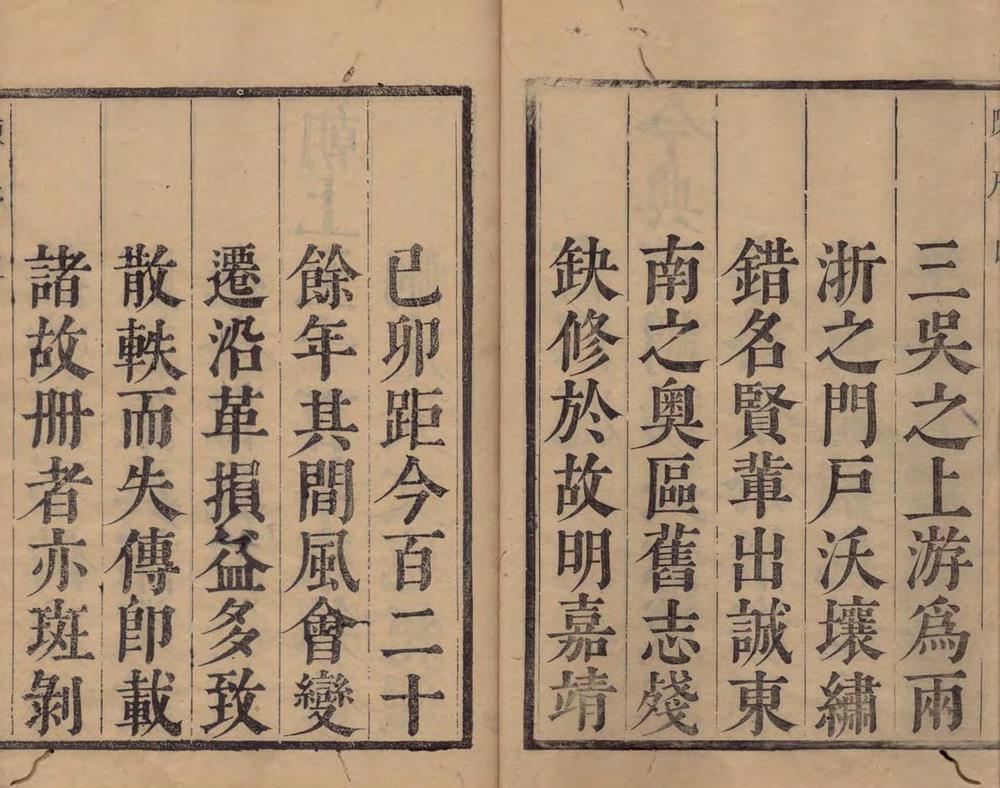 三吳之上游為兩
浙之門戶沃壤繡
錯名賢軰出誠東
南之奧區舊志殘
缺修於故明嘉靖
己卯距今百二十
餘年其間風會變
遷沿革損益多致
散軼而失傳卽載
諸故冊者亦斑剝